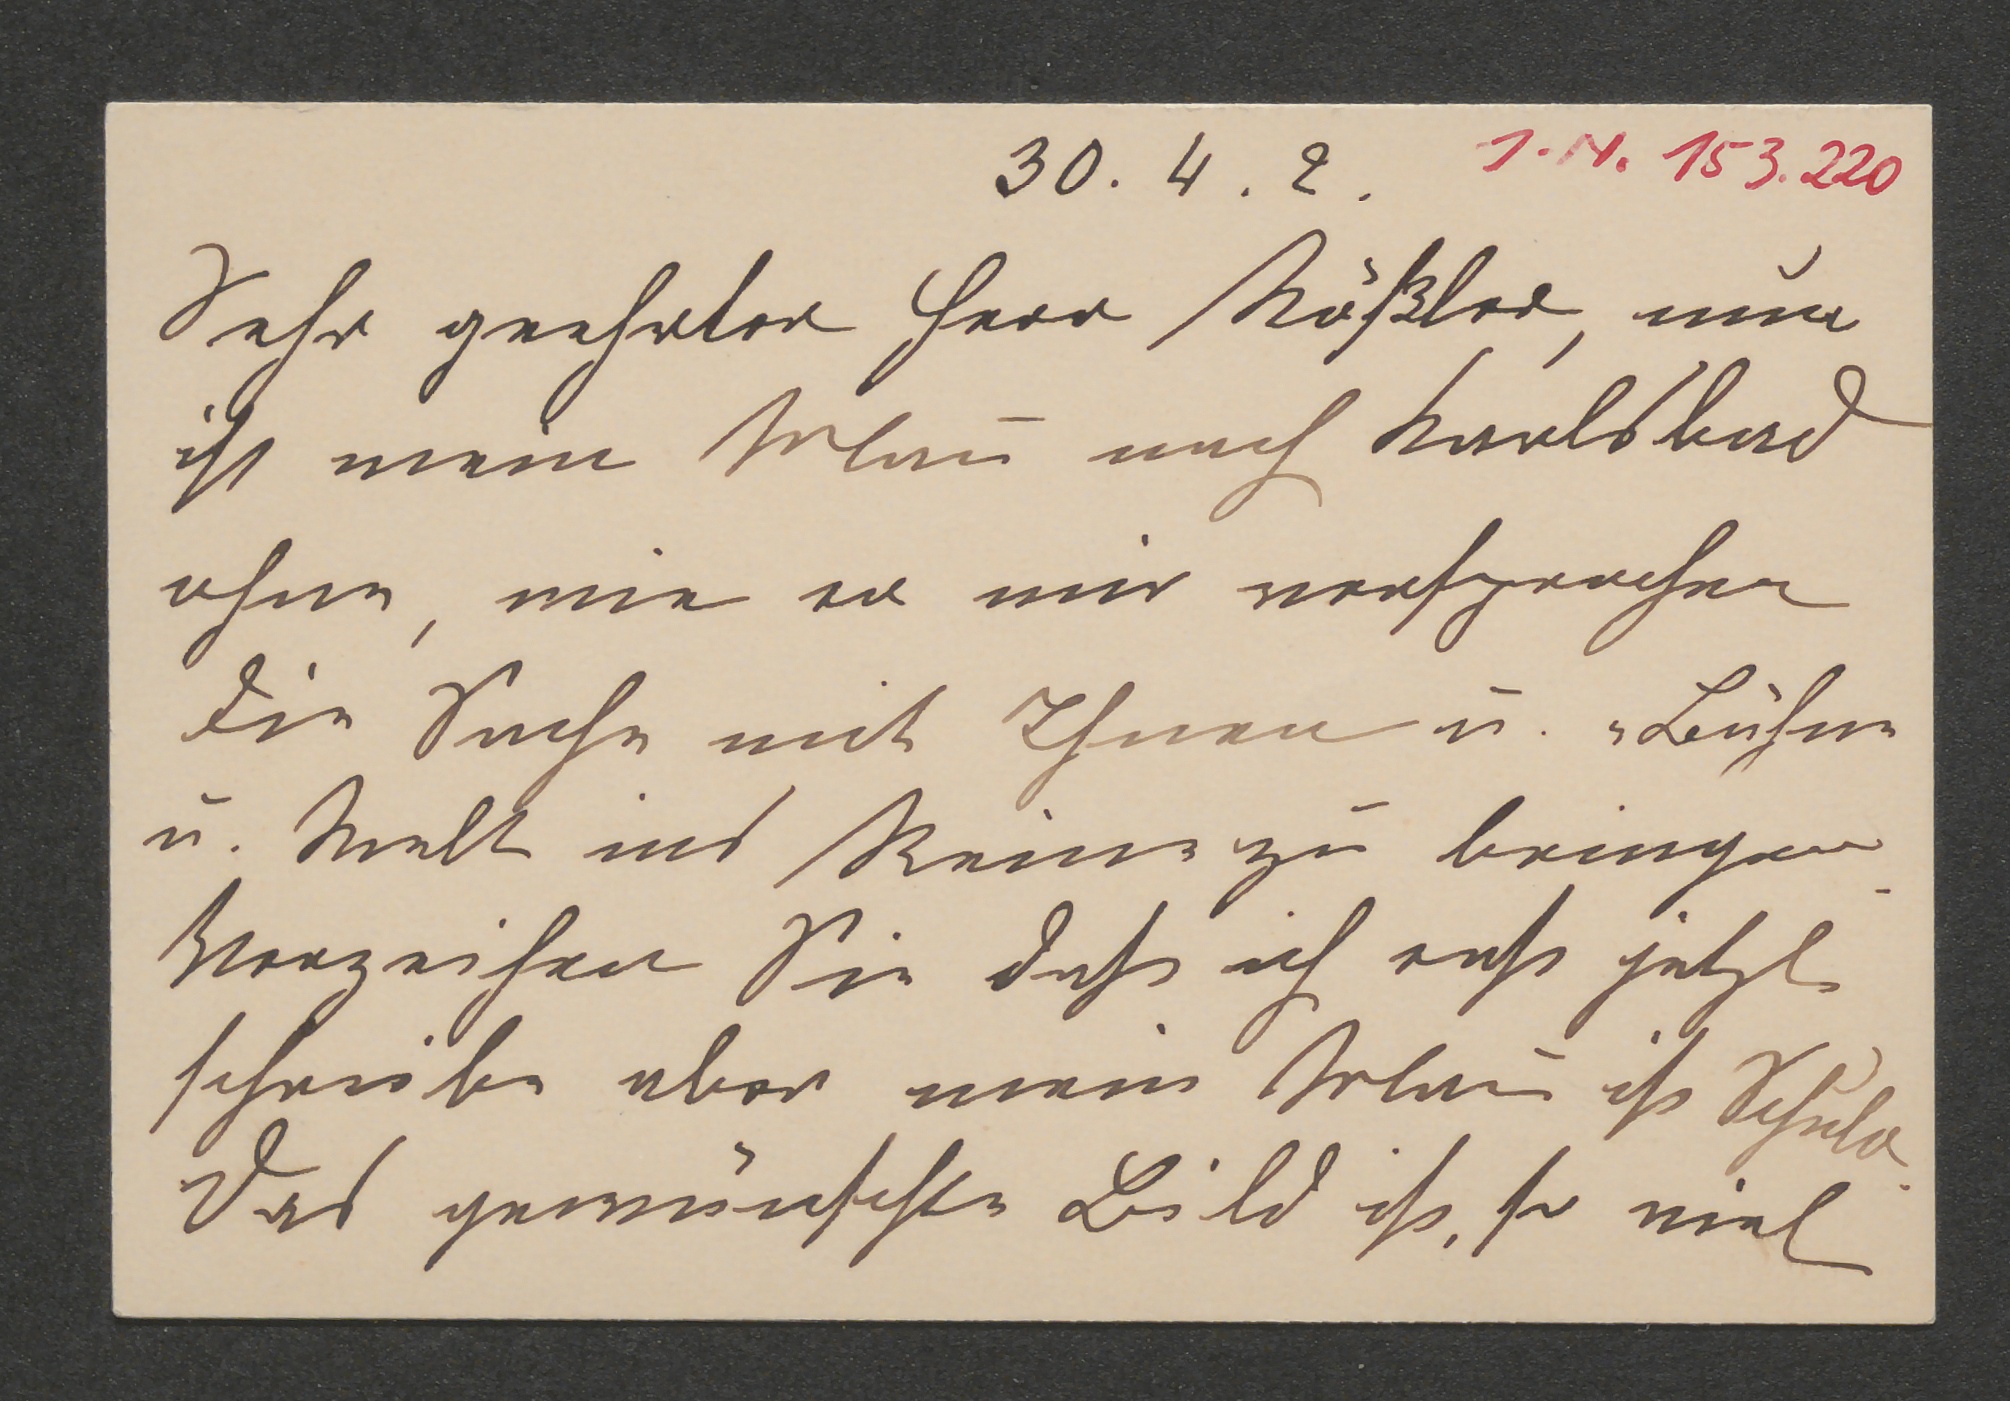 30. 4. 2. I. N. 153.220
Sehr geehrter Herr Rößler, nun
ist mein Mann nach Karlsbad
ohne, wie er mir versprochen
die Sache mit Ihnen u. „Bühne
u. Welt ins Reine zu bringen.
Verzeihen Sie daß ich erst jetzt
schreibe aber mein Mann ist Schuld.
Das gewünschte Bild ist, so viel